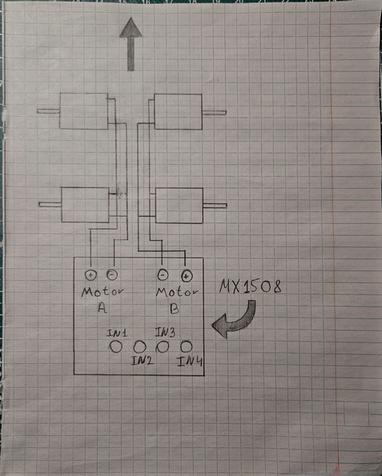 + - - +
Motor A
Motor B
MX1508
IN1
IN2
IN3
IN4